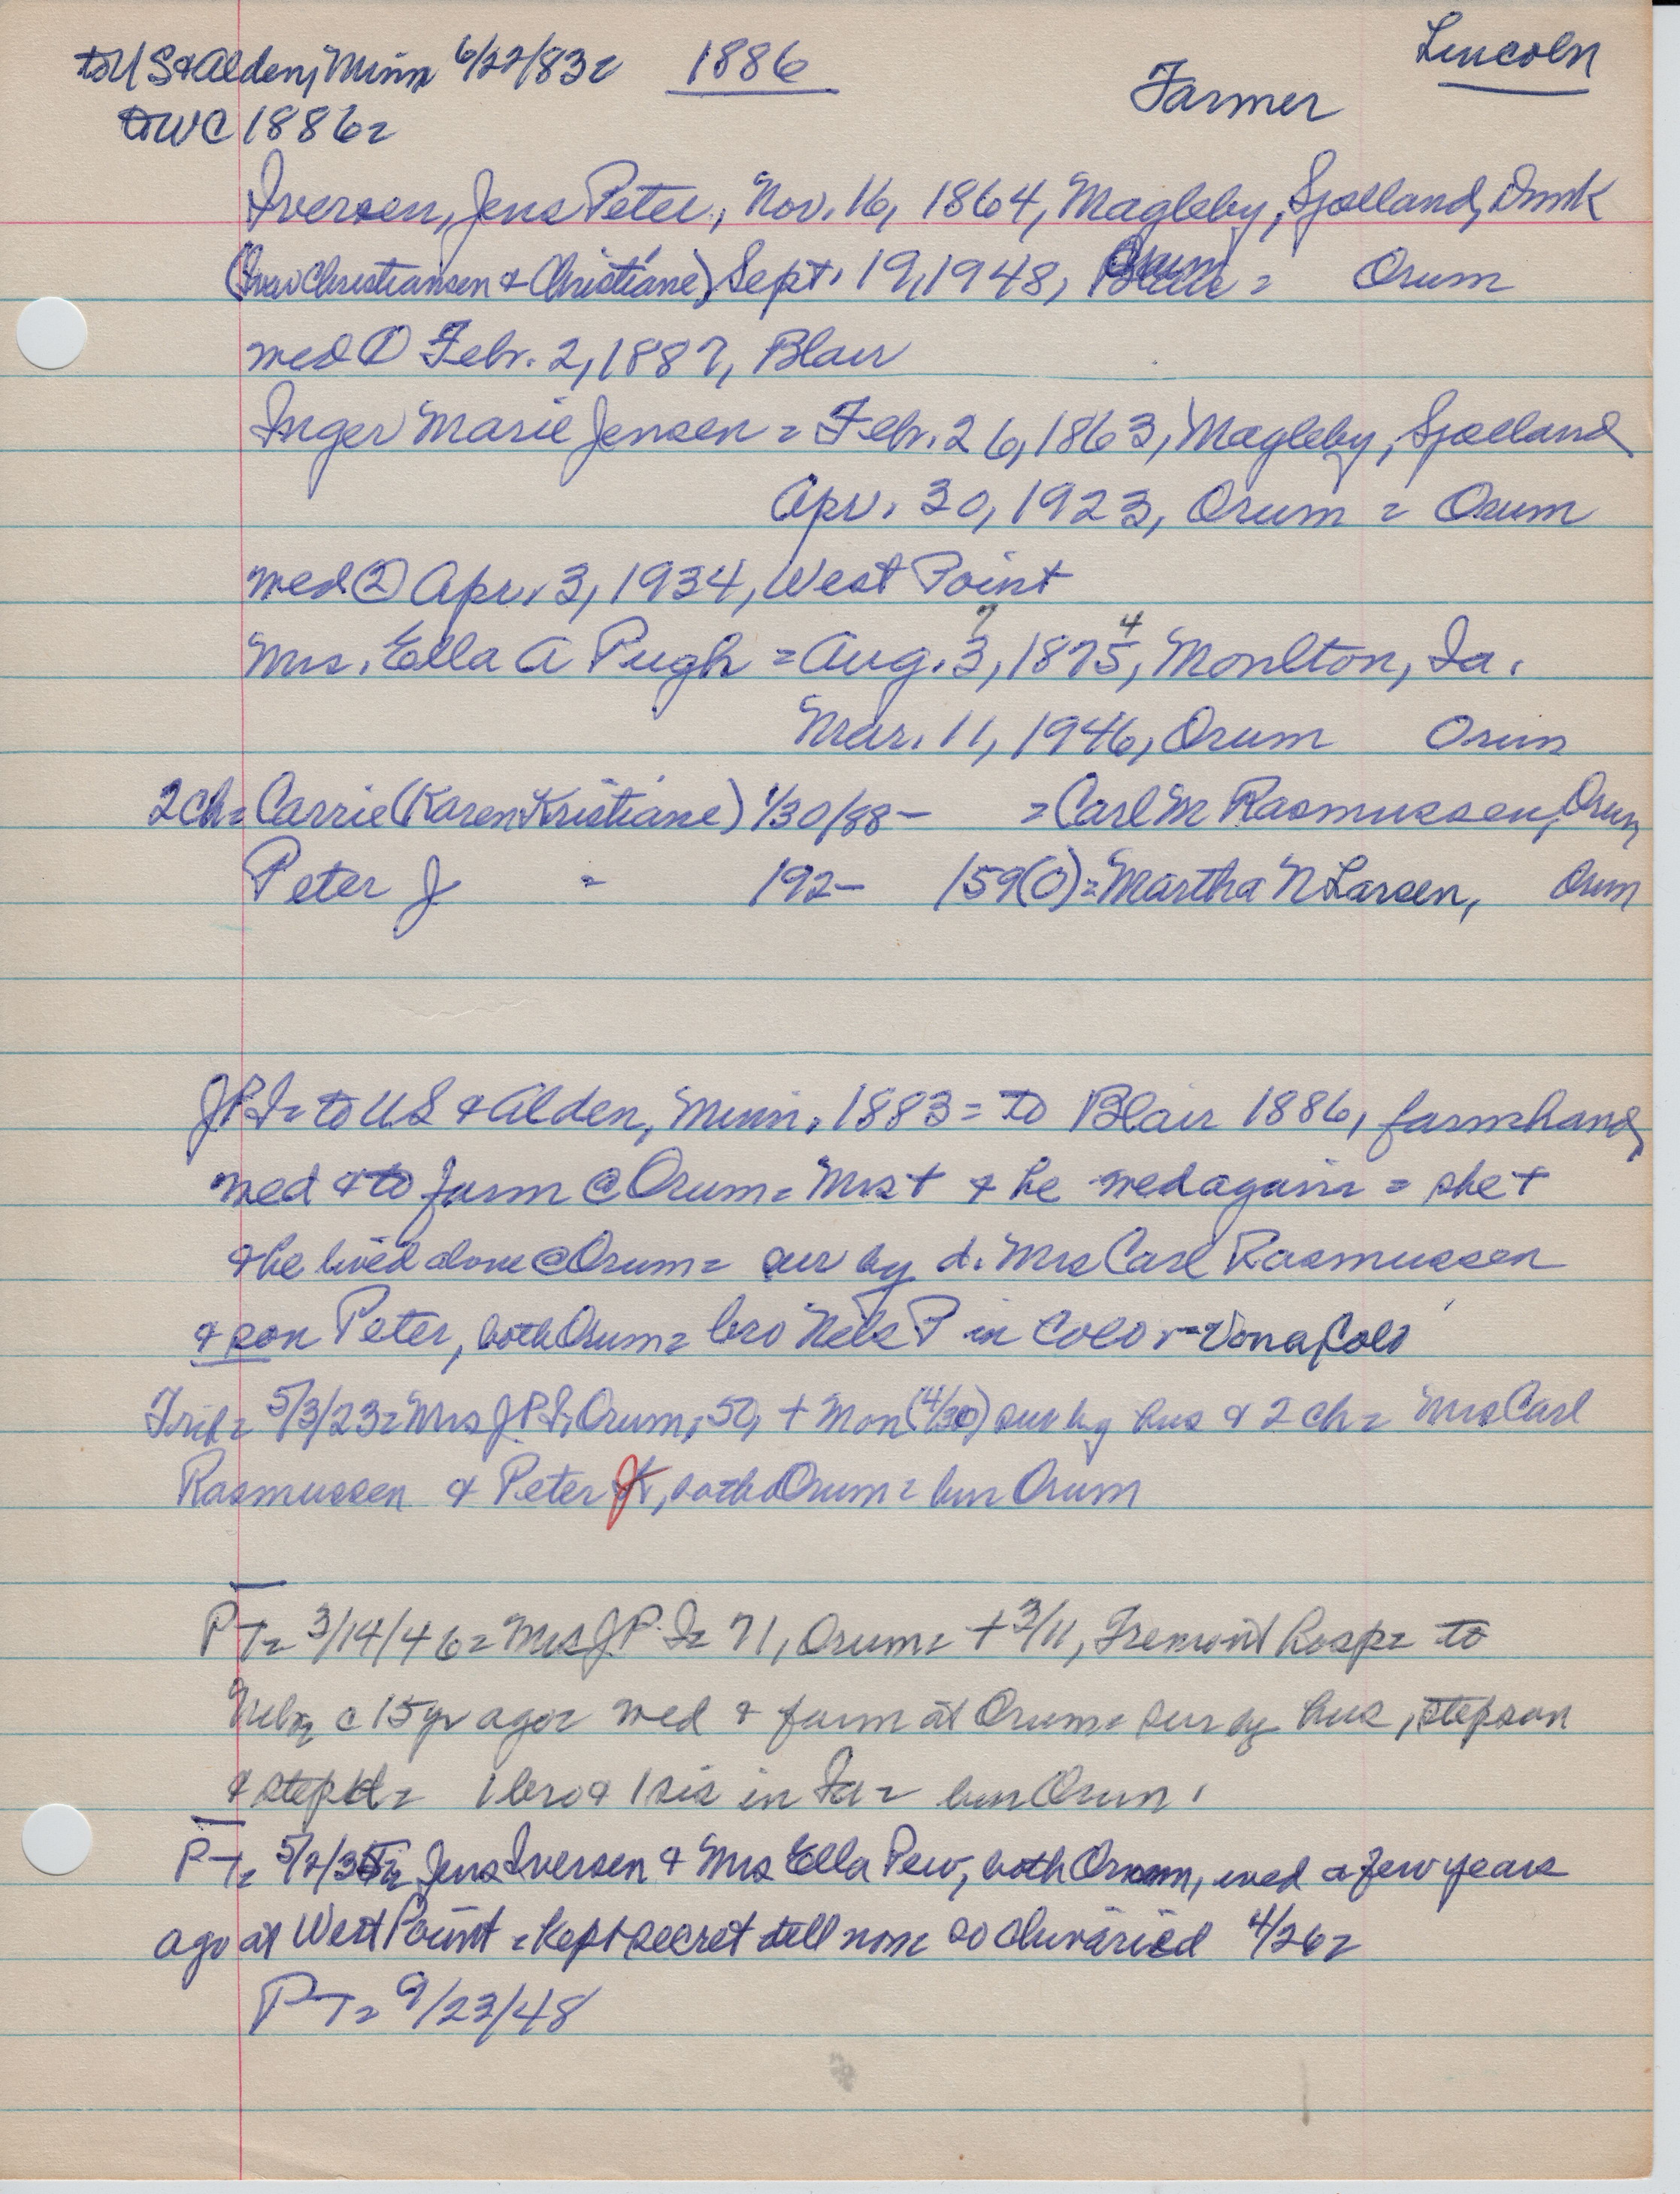 to US & Alden, Minn 6/22/83 = 1886 Farmer Lincoln
to WC 1886 =
Iversen, Jens Peter, Nov. 16, 1864, Magleby, Sjælland, Dmk
(Iver Christiansen & Christiane) Sept. 19, 1948, Orum = Orum
wed ① Febr. 2, 1887, Blair
Inger Marie Jensen = Febr. 26, 1863, Magleby, Sjælland
Apr. 30, 1923, Orum = Orum
wed ② Apr. 3, 1934, West Point
7 4
Mrs. Ella A Pugh = Aug. 3, 1875, Moulton, Ia.
Mar. 11, 1946, Orum Orum
2 ch = Carrie (Karen Kristiane) 1/30/88 - = Carl M Rasmussen, Orum
Peter J = 192- /59(0) = Martha N Larsen, Orum
JPI = to US & Alden, Minn. 1883 = to Blair 1886, farmhand,
wed & to farm @ Orum = Mrs + & he wed again = she +
& he lived alone @ Orum = sur by d. Mrs Carl Rasmussen
& son Peter, both Orum = bro Nels P in Colo = Vona, Colo
Trib = 5/3/23 = Mrs J.P.I, Orum, 50, + Mon (4/30) sur by hus & 2 ch = Mrs Carl
Rasmussen & Peter, both Orum = bur Orum
PT = 3/14/46 = Mrs J.P. I = 71, Orum = + 3/11, Fremont hosp = to
Neb c 15 yr ago = wed & farm at Orum = sur by hus, stepson
& stepd = 1 bro & 1 sis in Ia = bur Orum.
PT = Jens Iversen & Mrs Ella Pew, both Orum, wed a few years
ago at West Point = kept secret till now so 4/26 =
PT = 9/23/48